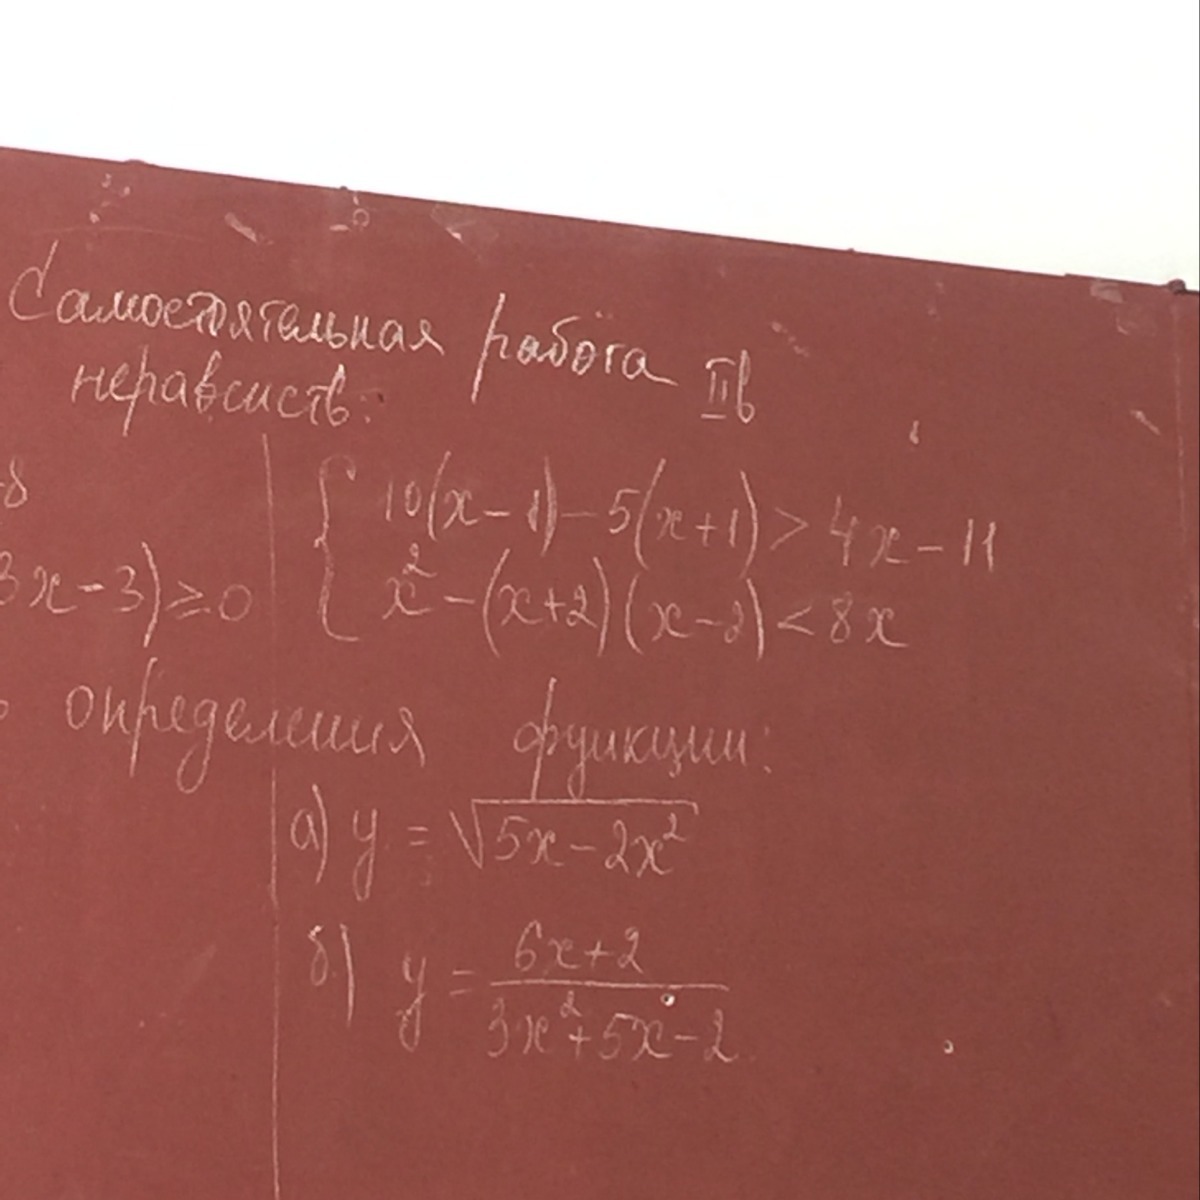 Самостоятельная работа IIв
неравенств:
-8
3x-3)≥0
{ 10(x-1)-5(x+1)>4x-11
x²-(x+2)(x-2)<8x
определения функции:
а) y=√5x-2x²
б) y= 6x+2
3x²+5x-2